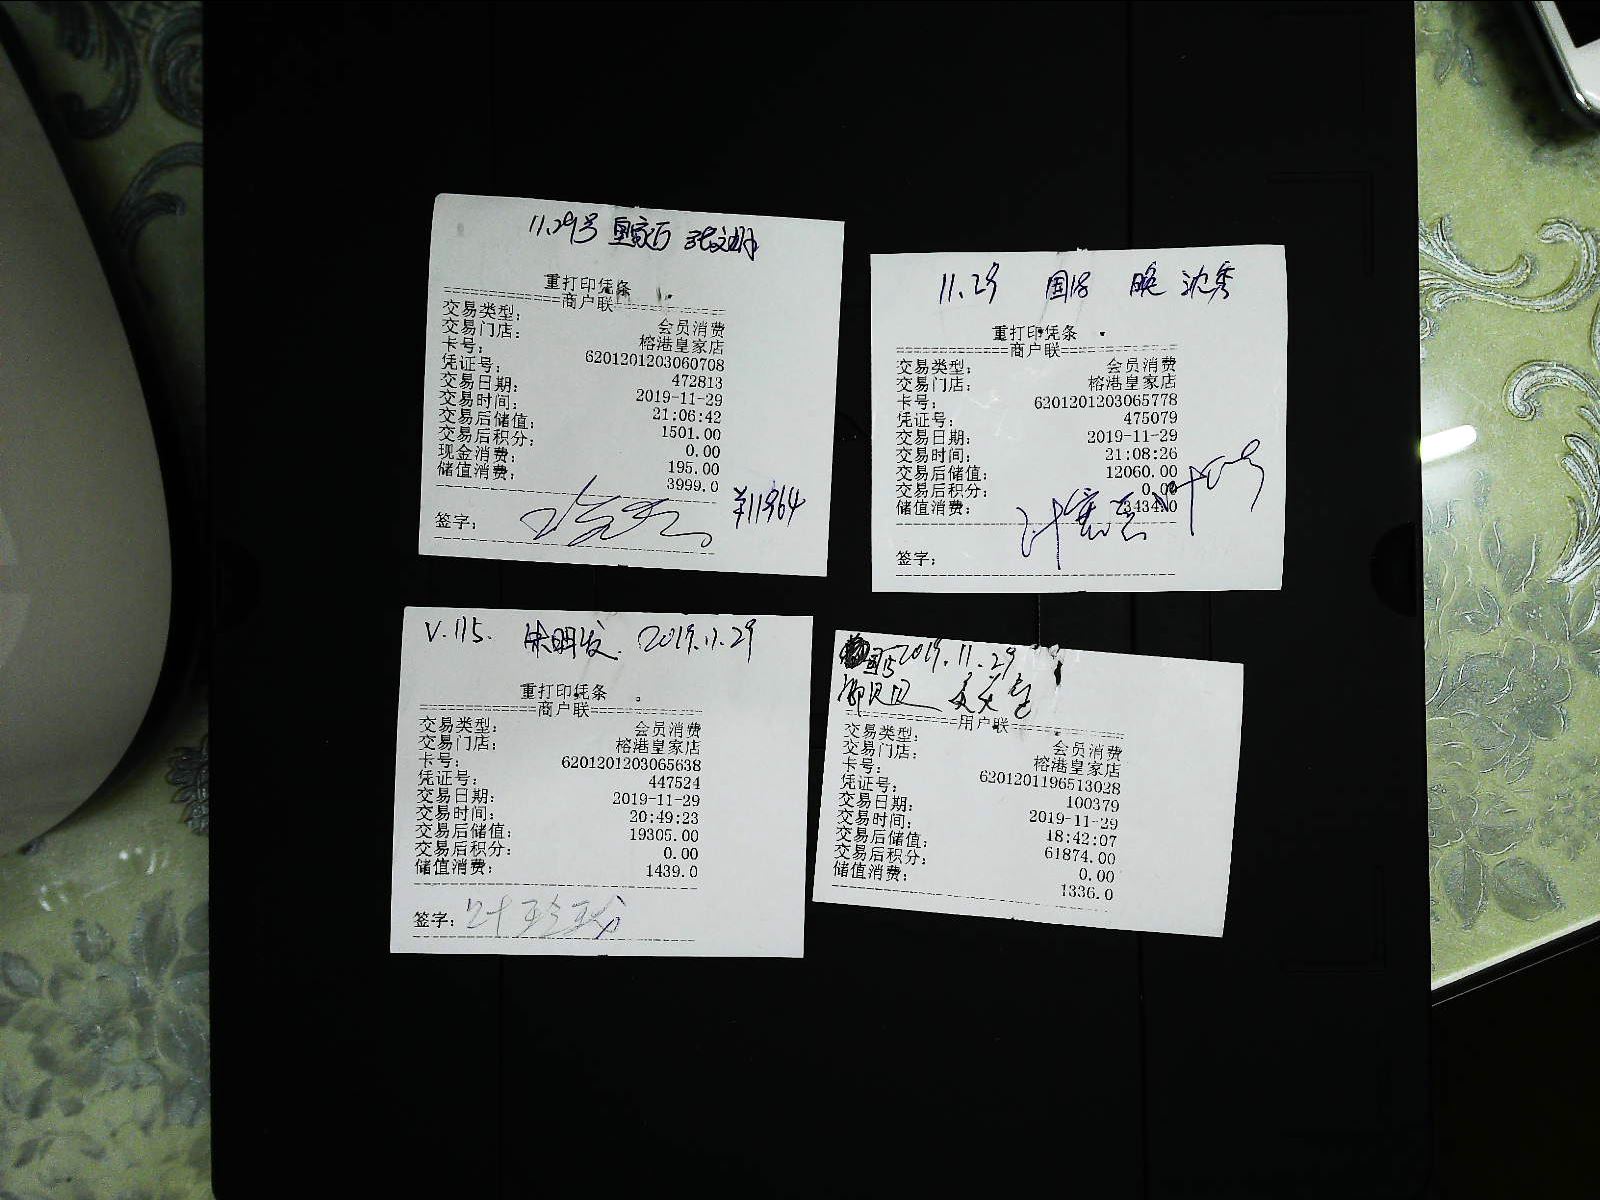 11.29号 皇家厅
重打印凭条
============商户联============
交易类型： 会员消费
交易门店： 榕港皇家店
卡号： 6201201203060708
凭证号： 472813
交易日期： 2019-11-29
交易时间： 21:06:42
交易后储值： 1501.00
交易后积分： 0.00
现金消费： 195.00
储值消费： 3999.0
签字：
11.29 国18 晚 沈秀
重打印凭条
============商户联============
交易类型： 会员消费
交易门店： 榕港皇家店
卡号： 6201201203065778
凭证号： 475079
交易日期： 2019-11-29
交易时间： 21:08:26
交易后储值： 12060.00
交易后积分： 0.00
储值消费： 3434.0
签字：
V.115. 宋明发. 2019.11.29
重打印凭条
============商户联============
交易类型： 会员消费
交易门店： 榕港皇家店
卡号： 6201201203065638
凭证号： 447524
交易日期： 2019-11-29
交易时间： 20:49:23
交易后储值： 19305.00
交易后积分： 0.00
储值消费： 1439.0
签字：
2019.11.29
============用户联============
交易类型： 会员消费
交易门店： 榕港皇家店
卡号： 6201201196513028
凭证号： 100379
交易日期： 2019-11-29
交易时间： 18:42:07
交易后储值： 61874.00
交易后积分： 0.00
储值消费： 1336.0